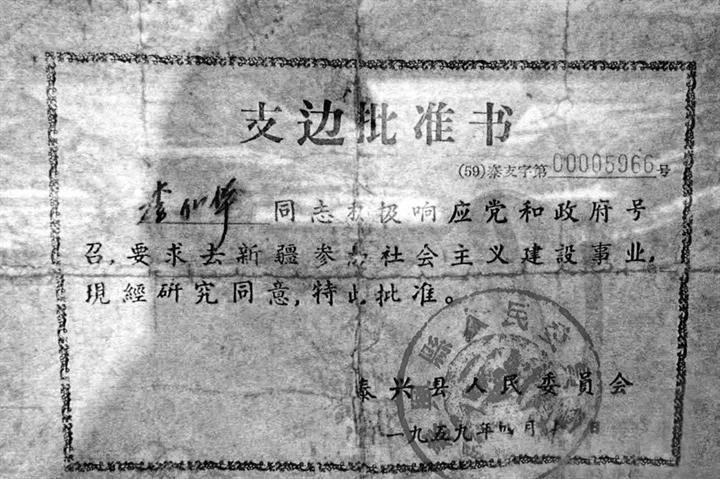 支边批准书
(59)泰支字第00005966号
李 同志积极响应党和政府号
召,要求去新疆参加社会主义建設事业,
現經研究同意,特此批准。
泰兴县人民委員会
一九五九年四月 日